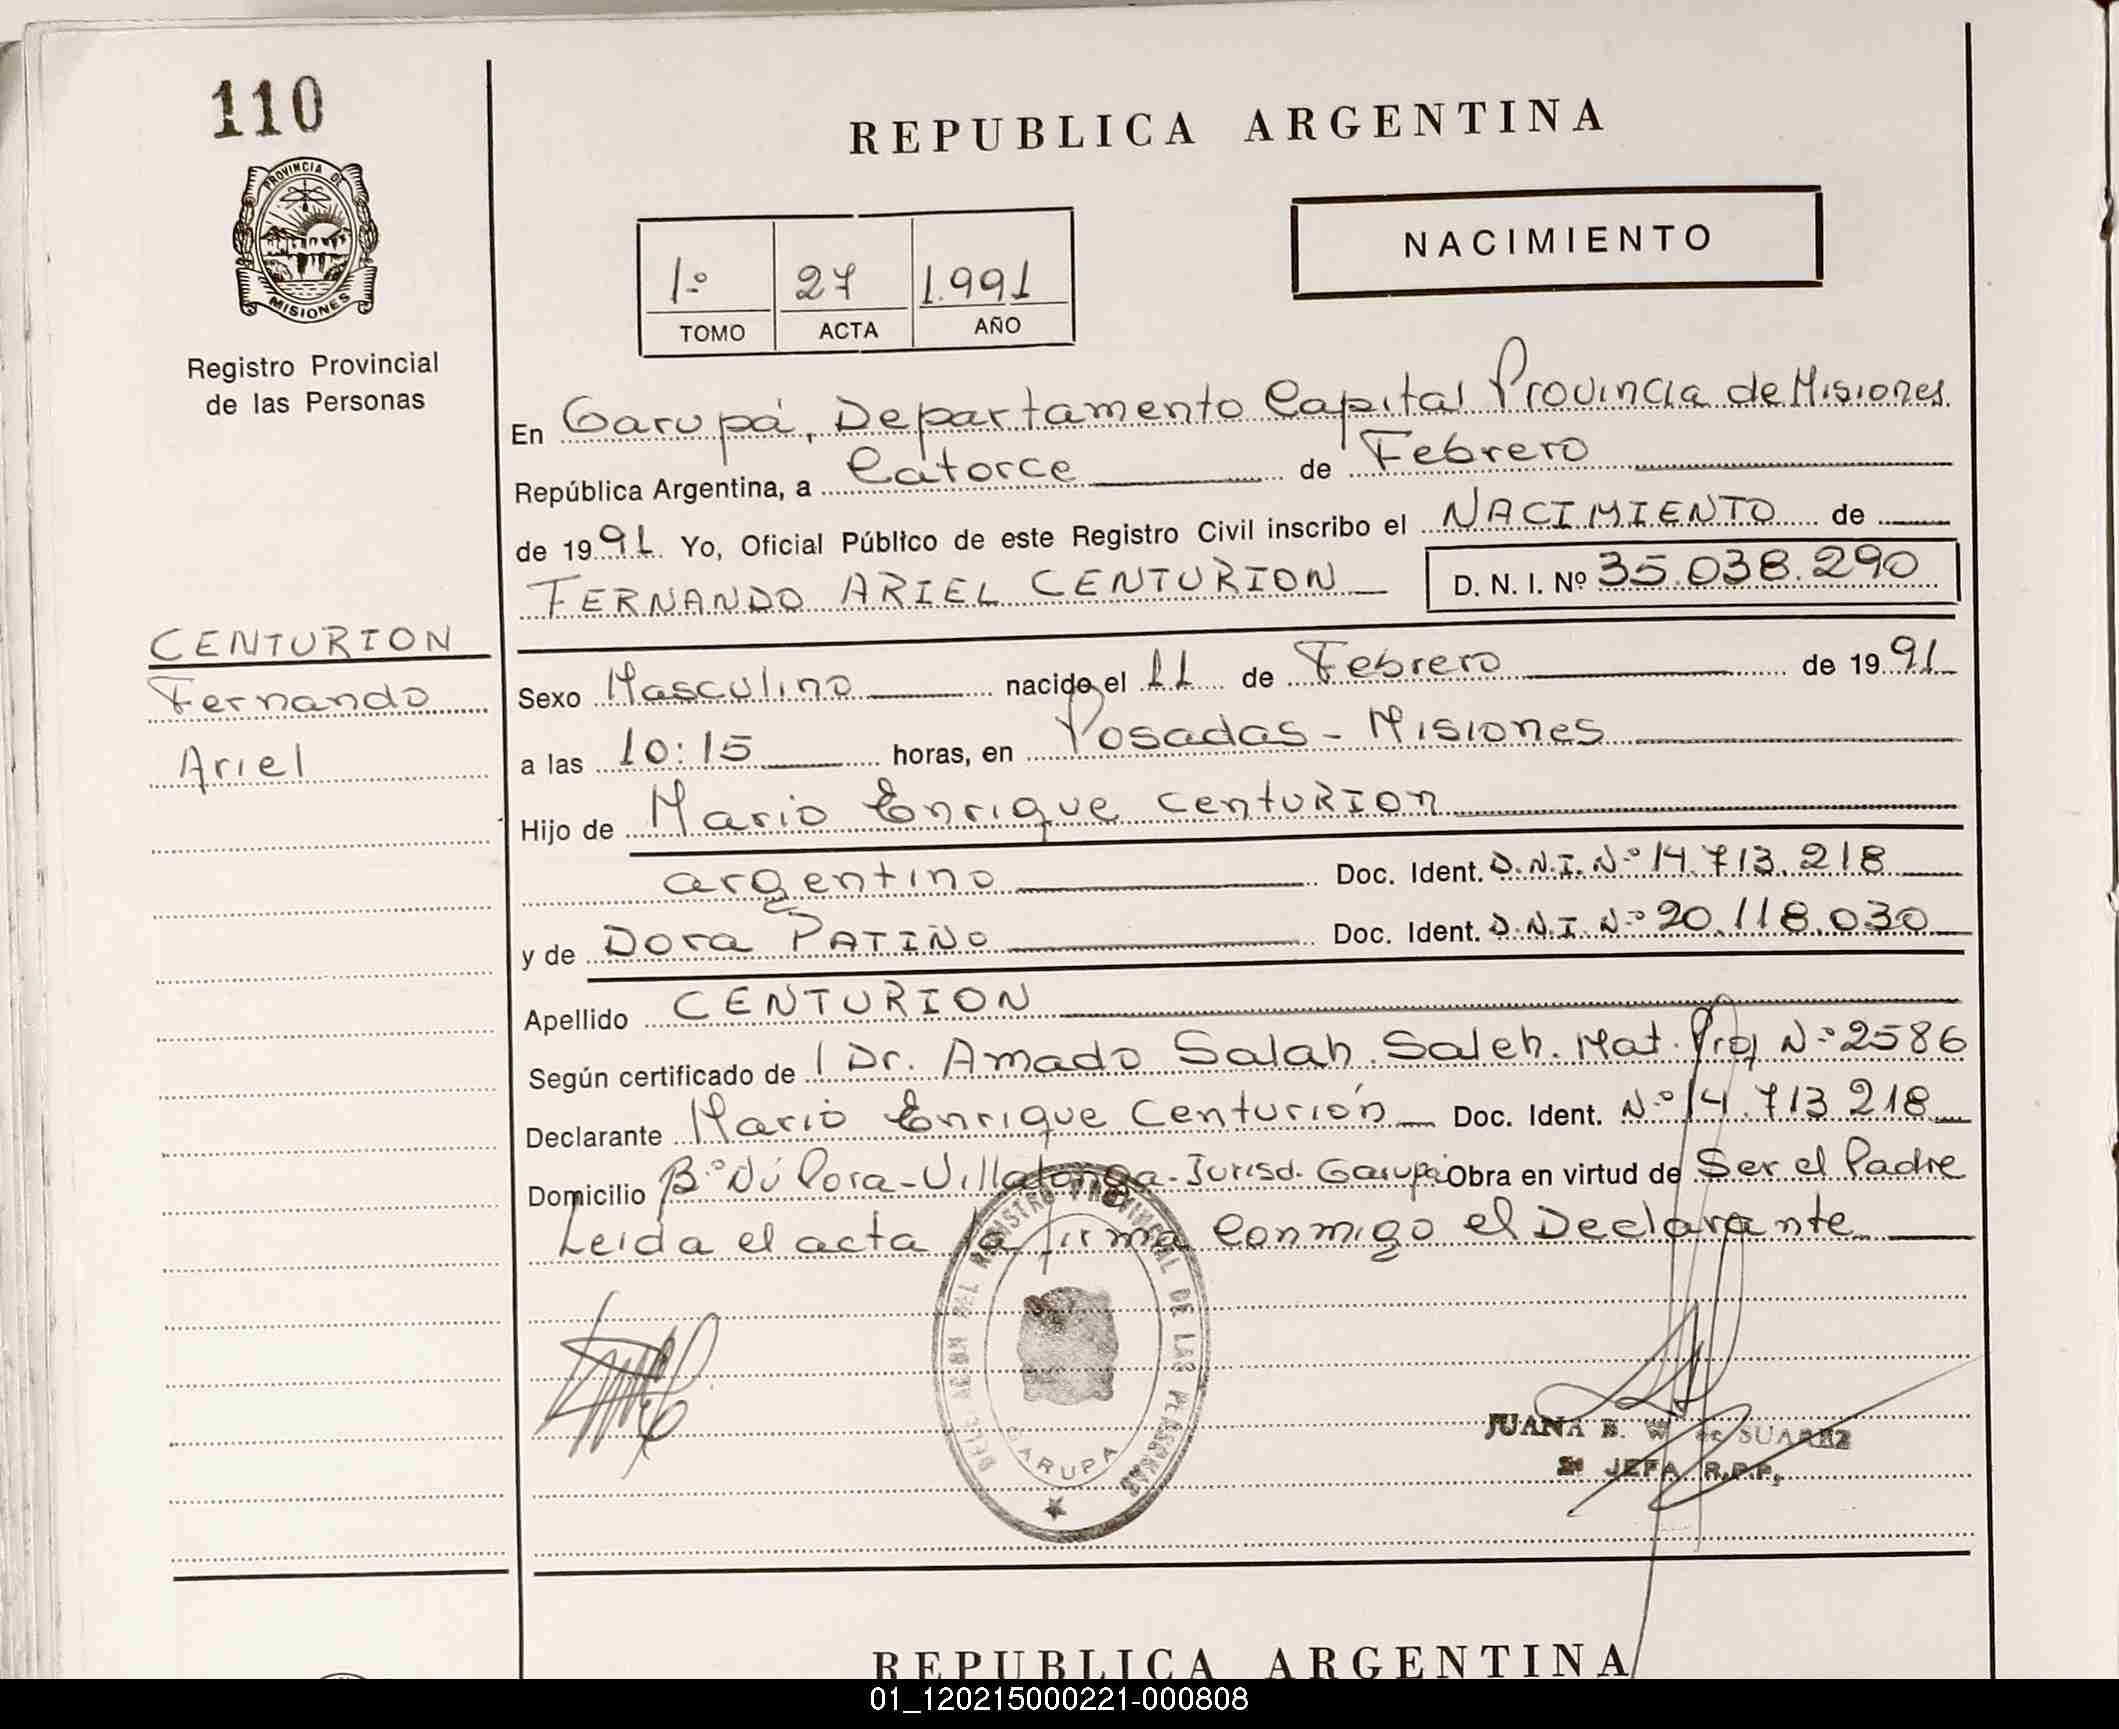 110
PROVINCIA DE
MISIONES
Registro Provincial
de las Personas
REPUBLICA ARGENTINA
NACIMIENTO
1º 27 1.991
TOMO ACTA AÑO
En Garupá, Departamento Capital Provincia de Misiones
República Argentina, a Catorce de Febrero
de 1991 Yo, Oficial Público de este Registro Civil inscribo el NACIMIENTO de
FERNANDO ARIEL CENTURION D. N. I. Nº 35.038.290
CENTURION
Fernando
Ariel
Sexo Masculino nacido el 11 de Febrero de 1991
a las 10:15 horas, en Posadas - Misiones
Hijo de Mario Enrique CentuRIOn
argentino Doc. Ident. D.N.I. Nº 14.713.218
y de Dora PATIÑO Doc. Ident. D.N.I. Nº 20.118.030
Apellido CENTURION
Según certificado de Dr. Amado Salah Saleh. Mat. Prof Nº 2586
Declarante Mario Enrique Centurión Doc. Ident. Nº 14.713 218
Domicilio Bº Ñú Porá - Villalonga - Jurisd. Garupá Obra en virtud de Ser el Padre
Leida el acta la firma Conmigo el Declarante
DELEGACION DEL REGISTRO PROVINCIAL DE LAS PERSONAS
GARUPA
JUANA B. W de SUAREZ
2º JEFA R.P.P.
REPUBLICA ARGENTINA
01_120215000221-000808